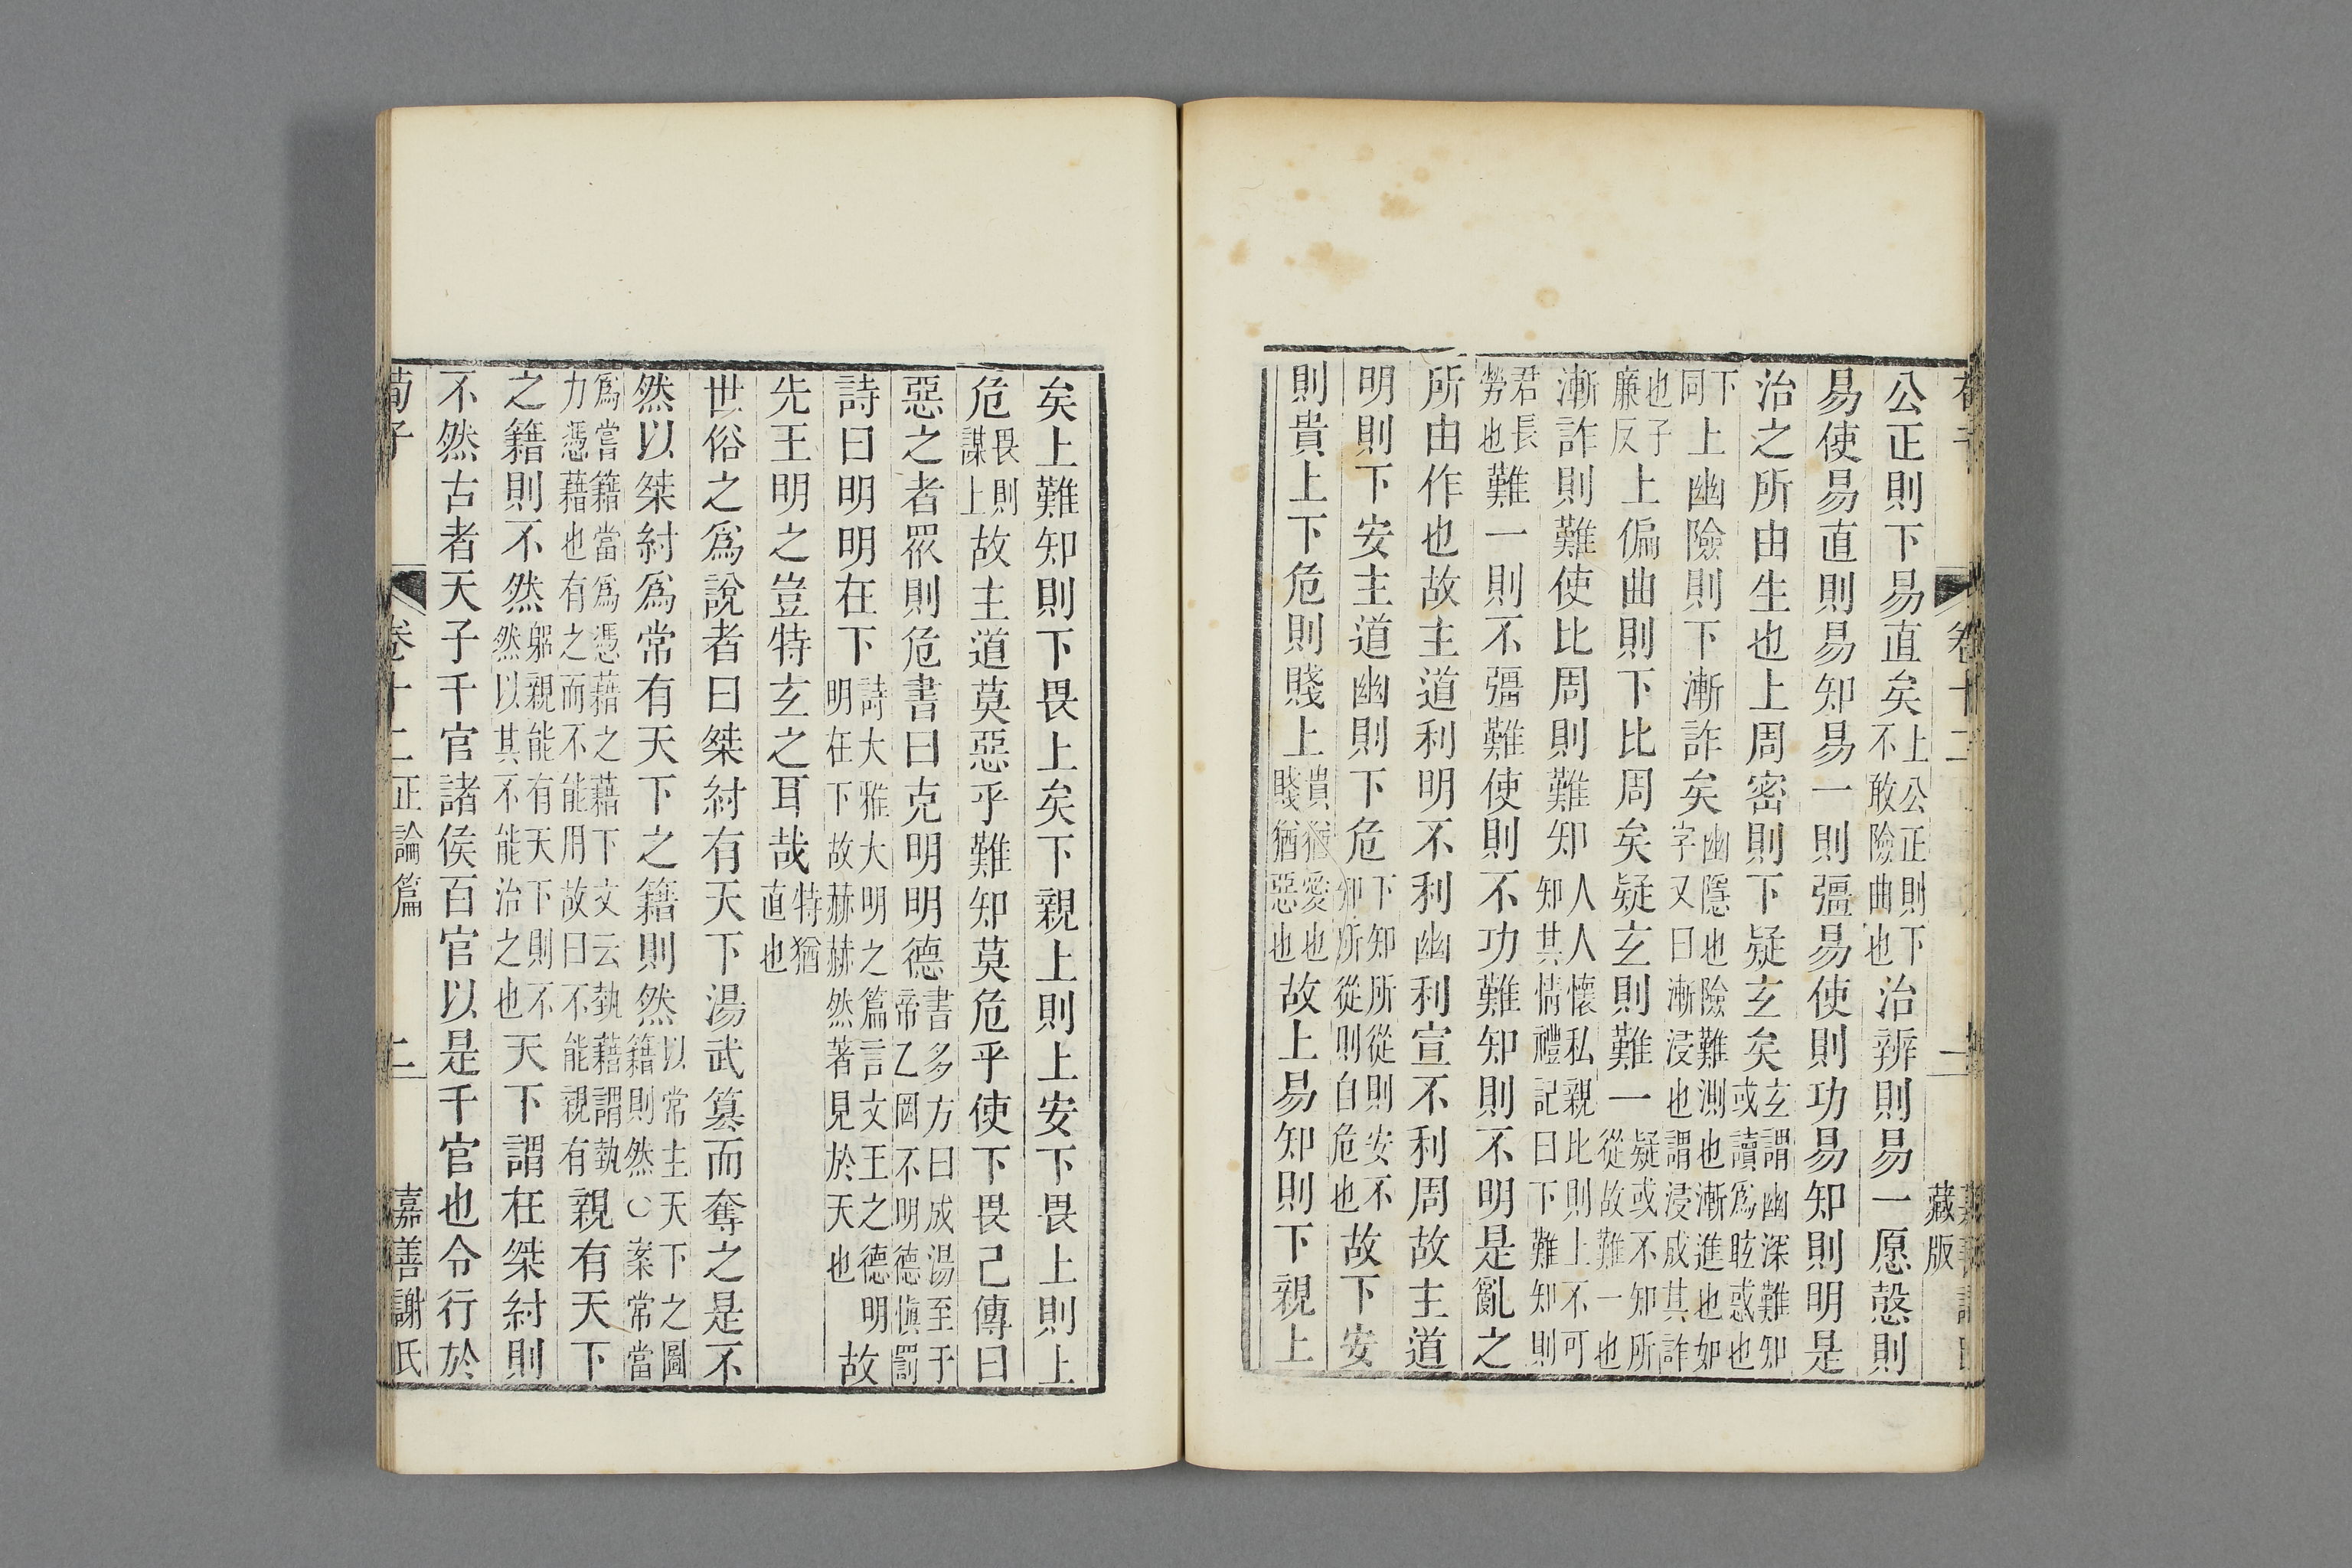 荀子 卷十二 二 嘉善謝氏藏版
公正則下易直矣上公正則下不敢險曲也治辨則易一愿愨則
易使易直則易知易一則彊易使則功易知則明是
治之所由生也上周密則下疑玄矣玄謂幽深難知或讀爲眩惑也下
同上幽險則下漸詐矣幽隱也險難測也漸進也如字又曰漸浸也謂浸成其詐也子
廉反上偏曲則下比周矣疑玄則難一疑或不知所從故難一也
漸詐則難使比周則難知人人懷私親比則上不可知其情禮記曰下難知則君長
勞也難一則不彊難使則不功難知則不明是亂之
所由作也故主道利明不利幽利宣不利周故主道
明則下安主道幽則下危下知所從則安不知所從則自危也故下安
則貴上下危則賤上貴猶愛也賤猶惡也故上易知則下親上
矣上難知則下畏上矣下親上則上安下畏上則上
危畏則謀上故主道莫惡乎難知莫危乎使下畏己傳曰
惡之者眾則危書曰克明明德書多方曰成湯至于帝乙罔不明德慎罰
詩曰明明在下詩大雅大明之篇言文王之德明明在下故赫赫然著見於天也故
先王明之豈特玄之耳哉特猶直也
世俗之爲說者曰桀紂有天下湯武篡而奪之是不
然以桀紂爲常有天下之籍則然以常主天下之圖籍則然○案常當
爲嘗籍當爲憑藉之藉下文云埶藉謂埶力憑藉也有之而不能用故曰不能親有親有天下
之籍則不然躬親能有天下則不然以其不能治之也天下謂在桀紂則
不然古者天子千官諸侯百官以是千官也令行於
荀子 卷十二 正論篇 二 嘉善謝氏